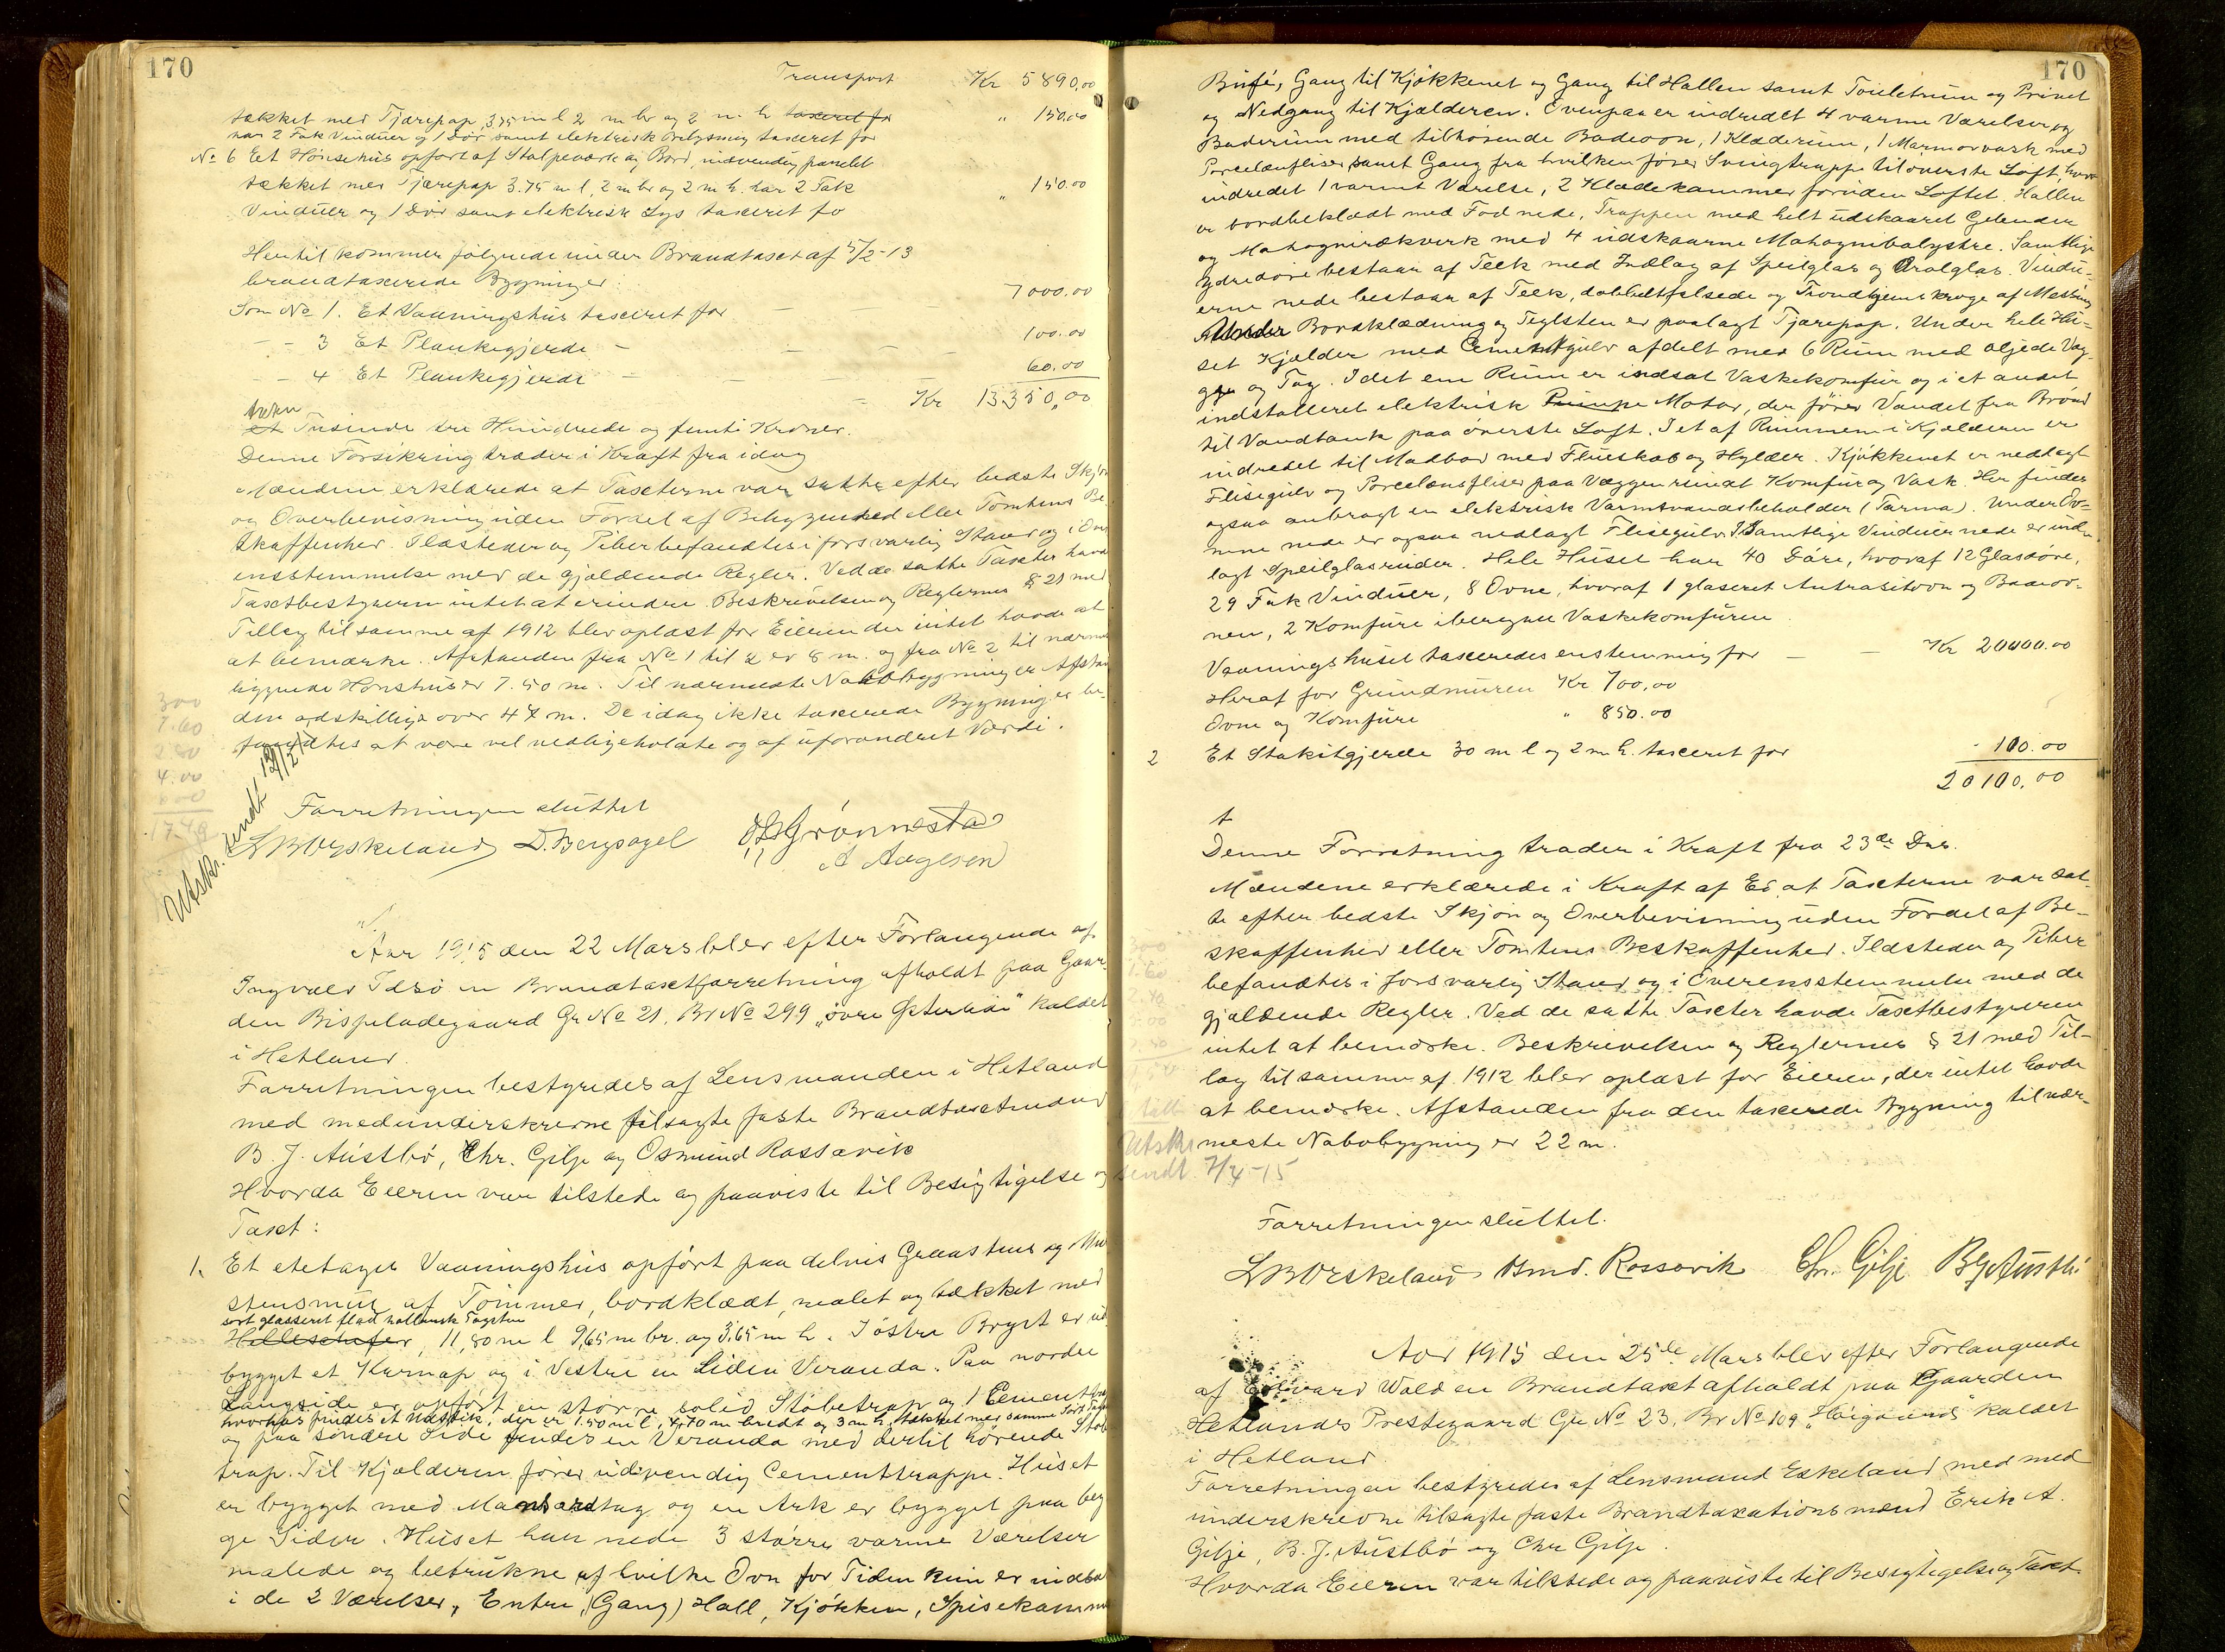 170
Transport Kr 5890,00
tækket med Tjærepap 3,75 m l 2 m br og 2 m h taxeret for
har 2 Fak Vinduer og 1 Dør samt elektrisk Belysning taxeret for " 150,00
No 6 Et Hønsehus opført af Stolpeværk og Bord, indvendig panelet
tækket med Tjærepap 3.75 m l, 2 m br og 2 m h. har 2 Fak
Vinduer og 1 Dør samt elektrisk Lys taxeret fo " 150.00
Hertil kommer følgende under Brandtaxt af 5/2-13
brandtaxerede Bygninger:
Som No 1. Et Vaaningshus taxeret for - 7000.00
- - 3 Et Plankegjerde - 100.00
- - 4 Et Plankegjerde - 60.00
- Kr 13350,00
tretten
et Tusinde tre Hundrede og femti Kroner.
Denne Forsikring træder i Kraft fra idag
Mændene erklærede at Taxterne var satte efter bedste Skjøn
og Overbevisning uden Fordel af Bebyggelsed eller Tomtens Be-
skaffenhed. Ildsteder og Piber befandtes i forsvarlig Stand og i Over
ensstemmelse med de gjældende Regler. Ved de satte Taxter havde
Taxtbestyreren intet at erindre. Beskrivelsen og Reglernes § 21 med
Tillæg til samme af 1912 blev oplæst for Eieren der intet havde at
at bemærke. Afstanden fra No 1 til 2 er 8 m. og fra No 2 til nærmest
liggende Hønshus er 7.50 m. Til nærmeste Nabobygning er Afstan
den adskillige over 47 m. De idag ikke taxerede Bygninger be-
fandtes at være vel vedligeholdte og af uforandret Værdi.
300
7.60
2.80
4.00
600
17.40
Utskr. sendt 12/12
Forretningen sluttet
LB Orskeland D. Bergsagel OL Grønnestad
A Aageson
Aar 1915 den 22 Mars blev efter Forlangende af
Ingvald Idsø en Brandtaxtforretning afholdt paa Gaar-
den Bispeladegaard Gr No 21, Br No 299 "øvre Østerlide" kaldet
i Hetland.
Forretningen bestyredes af Lensmanden i Hetland
med medunderskrevne tilsagte faste Brandtaxtmænd
B. J. Austbø, Chr. Gilje og Osmund Rossavik
Hvorda Eieren var tilstede og paaviste til Besigtigelse og
Taxt:
1. Et etetages Vaaningshus opført paa delvis Graastens og Mur
stensmur af Tømmer, bordklædt, malet og tækket med
sort glasseret flad hollansk Tagsten
Helleskifer, 11,80 m l 9,65 m br. og 3,65 m h. I østre Bryst er ud
bygget et Karnap og i Vestre en Liden Veranda. Paa nordre
Langside er opført en større solid Støbetrap og 1 Cementtrap
hvorhos findes et Udstik, der er 1.50 m l, 4,70 m bredt og 3 m h. tækket med samme Sort Tagst
og paa søndre Side findes en Veranda med dertil hørende Støbe
trap. Til Kjælderen fører udvendig Cementtrappe. Huset
er bygget med Mansardtag og en Ark er bygget paa beg
ge Sider. Huset har nede 3 større varme Værelser
malede og betrukne af hvilke Ovn for Tiden kun er indsat
i de 2 Værelser, Entre, (Gang) Hall, Kjøkken, Spisekammer
170
Bufé, Gang til Kjøkkenet og Gang til Hallen samt Toiletrum og Privet
og Nedgang til Kjælderen. Ovenpaa er indredet 4 varme Værelser og
Baderum med tilhørende Badeovn, 1 Klæderum, 1 Marmorvask med
Porcelænfliser, samt Gang fra hvilken fører Svingtrappe til øverste Loft, hvor
indredet 1 varmt Værelse, 2 Klædekammer foruden Loftet. Hallen
er bordbeklædt med Fod nede, Trappen med helt udskaaret Gelender
og Mahognirækverk med 4 udskaarne Mahognibalystre. Samtlige
ydredøre bestaar af Teek med Indlæg af Speilglas og Oralglas. Vindu-
erne nede bestaar af Teek, dobbeltfalsede og Trondhjems kroge af Messing
Under Bordklædning og Teglsten er paalagt Tjærepap. Under hele Hu-
set Kjælder med Cementgulv afdelt med 6 Rum med oljede Væg-
ge og Tag. I det ene Rum er indsat Vaskekomfur og i et andet
indstalleret elektrisk Pumpe Motor, der fører Vandet fra Brønd
til Vandtank paa øverste Loft. I et af Rummene i Kjælderen er
indredet til Madbod med Flueskab og Hylder. Kjøkkenet er nedlagt
Flisegulv og Porcelænsfliser paa Væggen rundt Komfur og Vask. Her findes
ogsaa anbragt en elektrisk Varmtvandsbeholder (Tarma). Under Ov-
nene nede er ogsaa nedlagt Flisegulv. I Samtlige Vinduer nede er ind-
lagt Speilglasruder. Hele Huset har 40 Døre, hvoraf 12 Glasdøre,
29 Fak Vinduer, 8 Ovne, hvoraf 1 glaseret Antrasitovn og Badeov-
nen, 2 Komfure iberegnet Vaskekomfuren.
Vaaningshuset taxeredes enstemmig for - - Kr 20000.00
Heraf for Grundmuren Kr 700,00
Ovne og Komfure " 850.00
2 Et Stakitgjerde 30 m l og 2 m h. taxeret for - 100.00
20100,00
Denne Forretning træder i Kraft fra 23de Ds.
Mændene erklærede i Kraft af Ed at Taxterne var sat-
te efter bedste Skjøn og Overbevisning uden Fordel af Be-
skaffenhed eller Tomtens Beskaffenhed. Ildsteder og Piber
befandtes i forsvarlig Stand og i Overensstemmelse med de
gjældende Regler. Ved de satte Taxter havde Taxtbestyreren
intet at bemærke. Beskrivelsen og Reglernes § 21 med Til-
læg til samme af 1912 blev oplæst for Eieren, der intet havde
at bemærke. Afstanden fra den taxerede Bygning til nær-
meste Nabobygning er 22 m.
Utskr
sendt 7/4-15
Forretningen sluttet.
LB Orskeland Osmd. Rossavik Chr. Gilje BJ Austbø
Aar 1915 den 25de Mars blev efter Forlangende
af Edvard Wold en Brandtaxt afholdt paa Gaarden
Hetlands Prestegaard Gr No 23, Br No 109 "Høigaard" kaldet
i Hetland.
Forretningen bestyredes af Lensmand Eskeland med med
underskrevne tilsagte faste Brandtaxationsmænd Erik A.
Gilje, B. J. Austbø og Chr Gilje.
Hvorda Eieren var tilstede og paaviste til Besigtigelse og Taxt